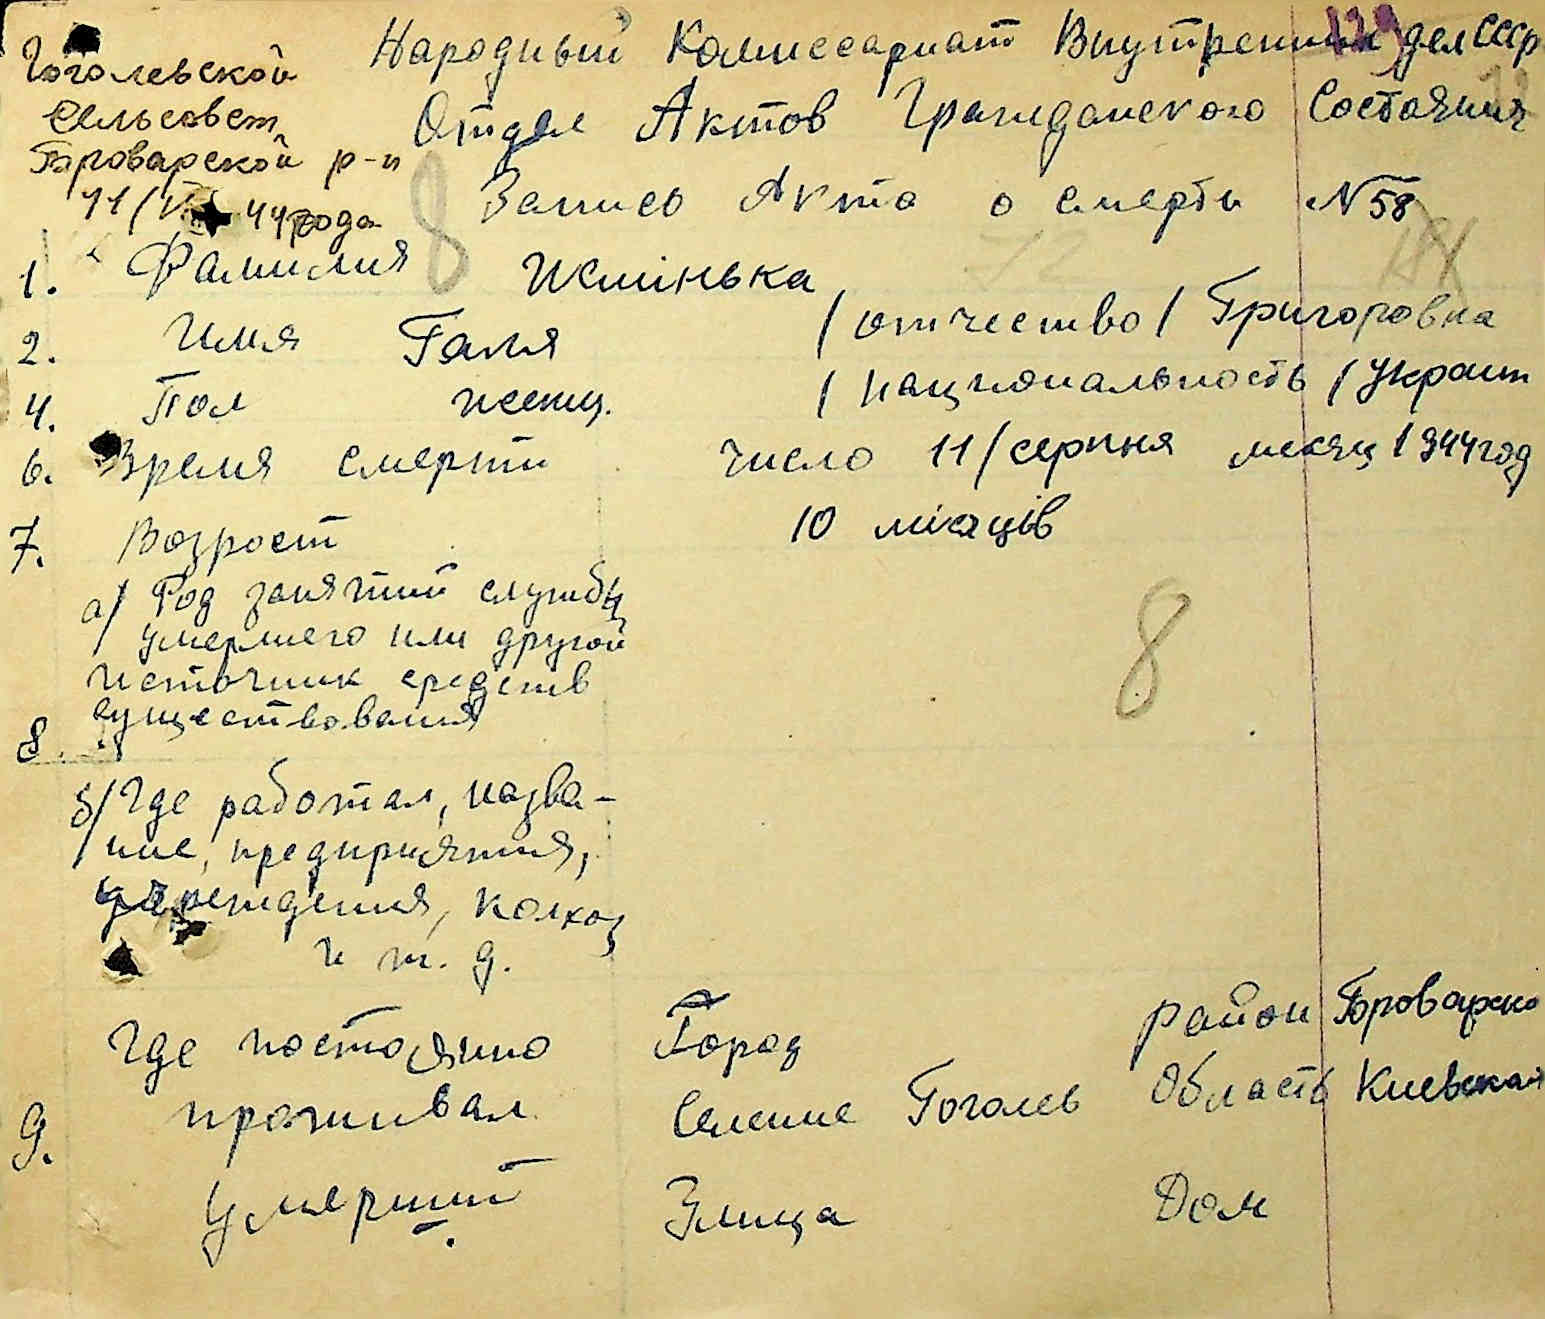 Гоголевской
Сельсовет
Броварской р-н
11/ 44 года
Народный Комиссариат Внутренних дел СССР
Отдел Актов Гражданского Состояния
Запись Акта о смерти N 58
1. Фамилия
2. Имя Галя / отчество / Григоровна
4. Пол женщ. / национальность / Украин
6. Время смерти число 11 / серпня месяц 1944 год
7. Возрост 10 місяців
8
а/ Род занятий службы
умершего или другой
источник средств
существования
8.
8
б/ Где работал, назва-
ние, предприятия,
учреждения, колхоз
и т. д.
9. Где постояно
проживал
Умерший
Город район Броварско
Селение Гоголев Область Киевская
Улица Дом